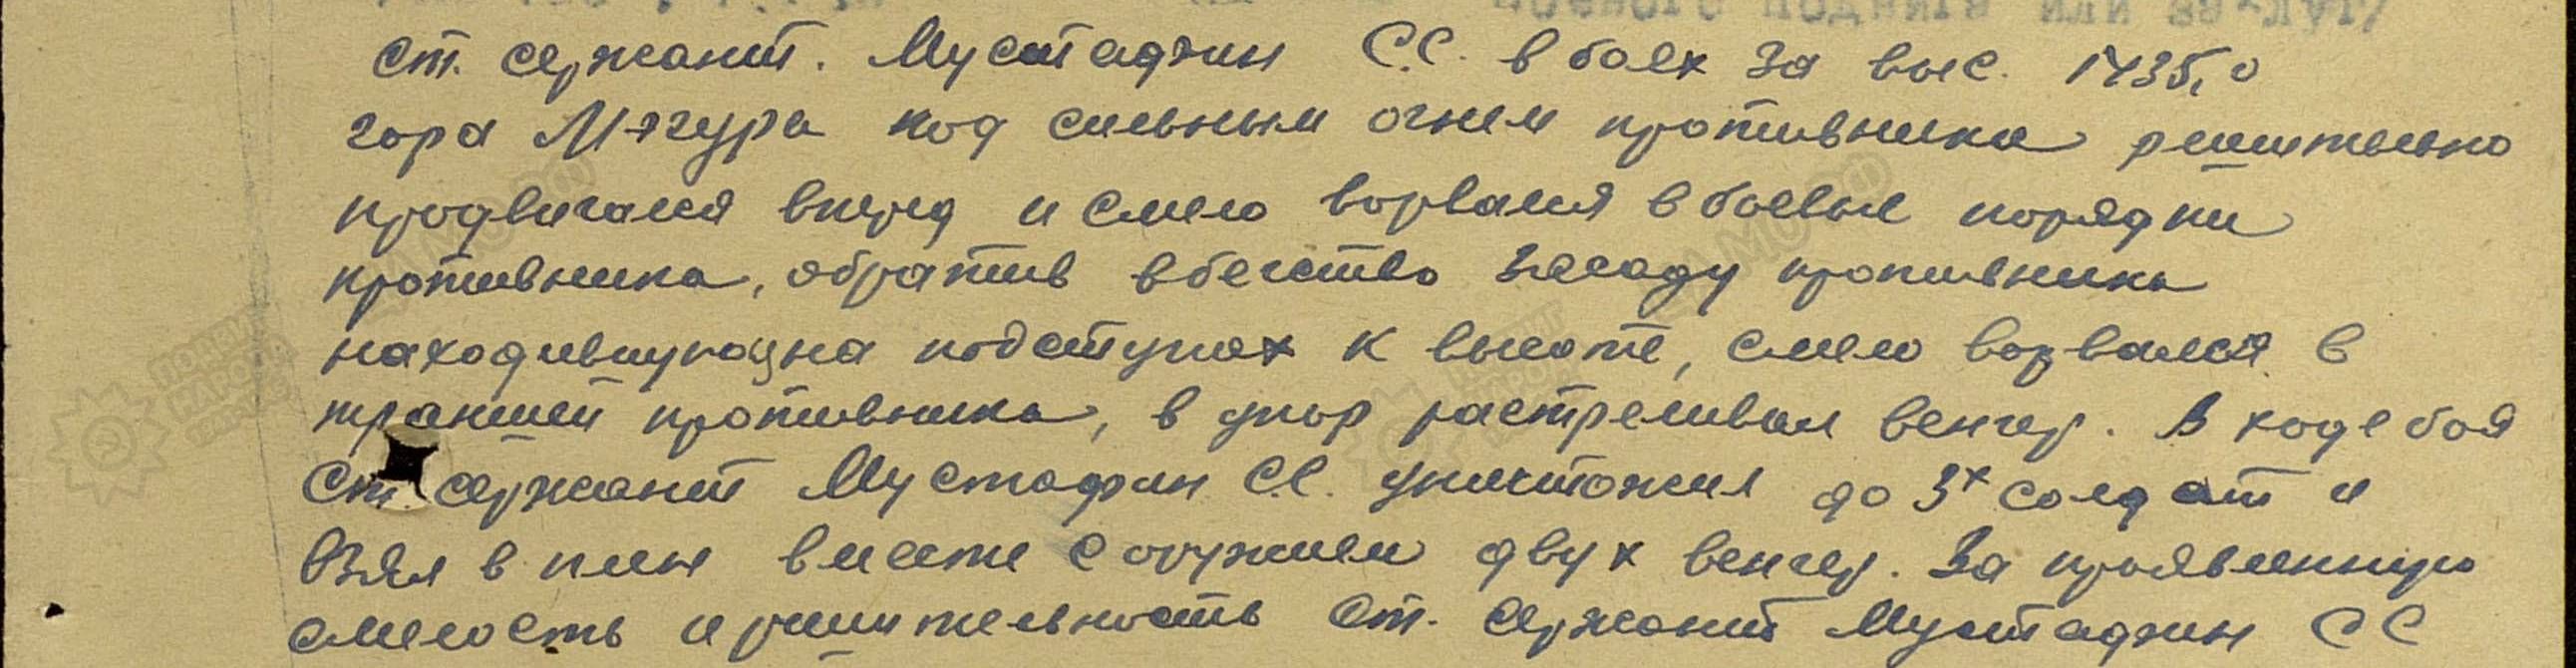 боевого подвига или заслуг/
ст. сержант. Мустафин С.С. в боях за выс. 1435,0
гора Мягура под сильным огнем противника решительно
продвигался вперед и смело ворвался в боевые порядки
противника, обратив в бегство засаду противника
находившуюся на подступах к высоте, смело ворвался в
траншеи противника, в упор растреливал венгер. В ходе боя
Ст. сержант Мустафин С.С. уничтожил до 3х солдат и
взял в плен вместе с оружием двух венгер. За проявленную
смелость и решительность ст. сержант Мустафин СС